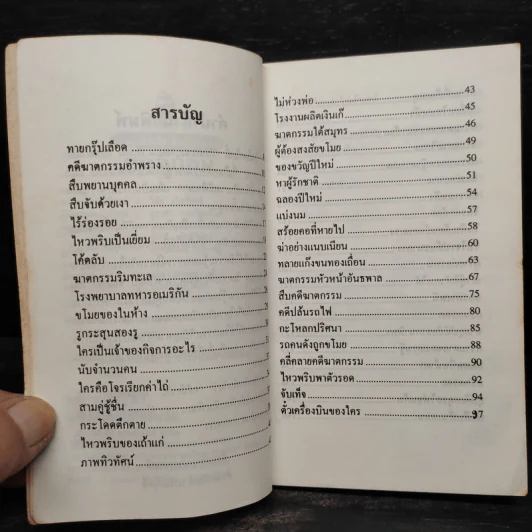 สารบัญ
ทายกรุ๊ปเลือด
คดีฆาตกรรมอำพราง
สืบพยานบุคคล
สืบจับด้วยเงา
ไร้ร่องรอย
ไหวพริบเป็นเยี่ยม
โค้ดลับ
ฆาตกรรมริมทะเล
โรงพยาบาลทหารอเมริกัน
ขโมยของในห้าง
รูกระสุนสองรู
ใครเป็นเจ้าของกิจการอะไร
นับจำนวนคน
ใครคือโจรเรียกค่าไถ่
สามคู่ชู้ชื่น
กระโดดตึกตาย
ไหวพริบของเถ้าแก่
ภาพทิวทัศน์
ไม่ห่วงพ่อ 43
โรงงานผลิตเงินเก๊ 45
ฆาตกรรมใต้สมุทร 46
ผู้ต้องสงสัยขโมย 49
ของขวัญปีใหม่ 50
หาผู้รักชาติ 51
ฉลองปีใหม่ 54
แบ่งนม 57
สร้อยคอที่หายไป 58
ฆ่าอย่างแนบเนียน 60
ทลายแก๊งขนทองเถื่อน 63
ฆาตกรรมหัวหน้าอันธพาล 67
สืบคดีฆาตกรรม 75
คดีปล้นรถไฟ 80
กะโหลกปริศนา 85
รถคนดังถูกขโมย 88
คลี่คลายคดีฆาตกรรม 90
ไหวพริบพาตัวรอด 92
จับเท็จ 94
ตั๋วเครื่องบินของใคร 97